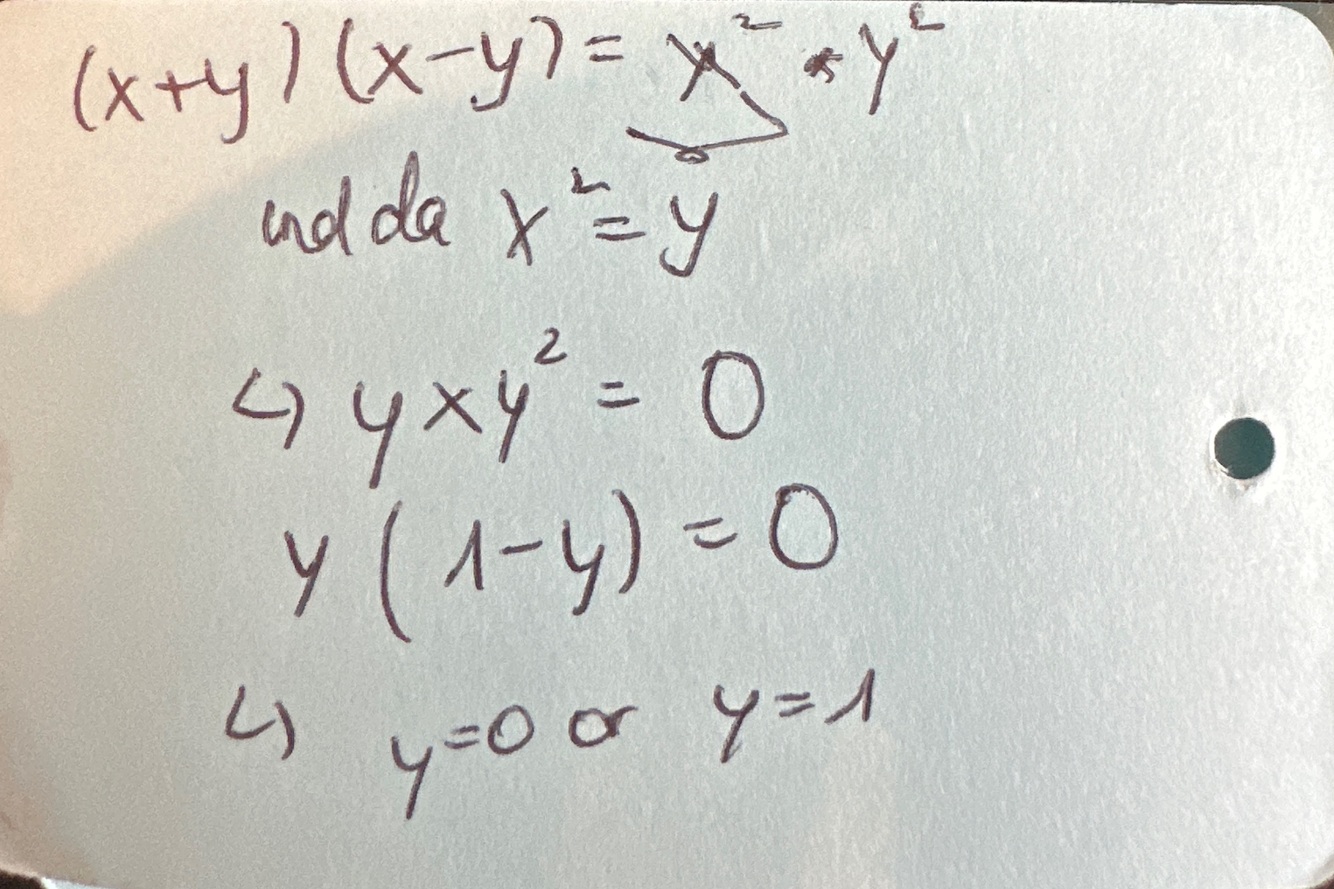 (x+y) (x-y) = x² * y²
und da x² = y
↳ y x y² = 0
y (1-y) = 0
↳ y=0 or y=1